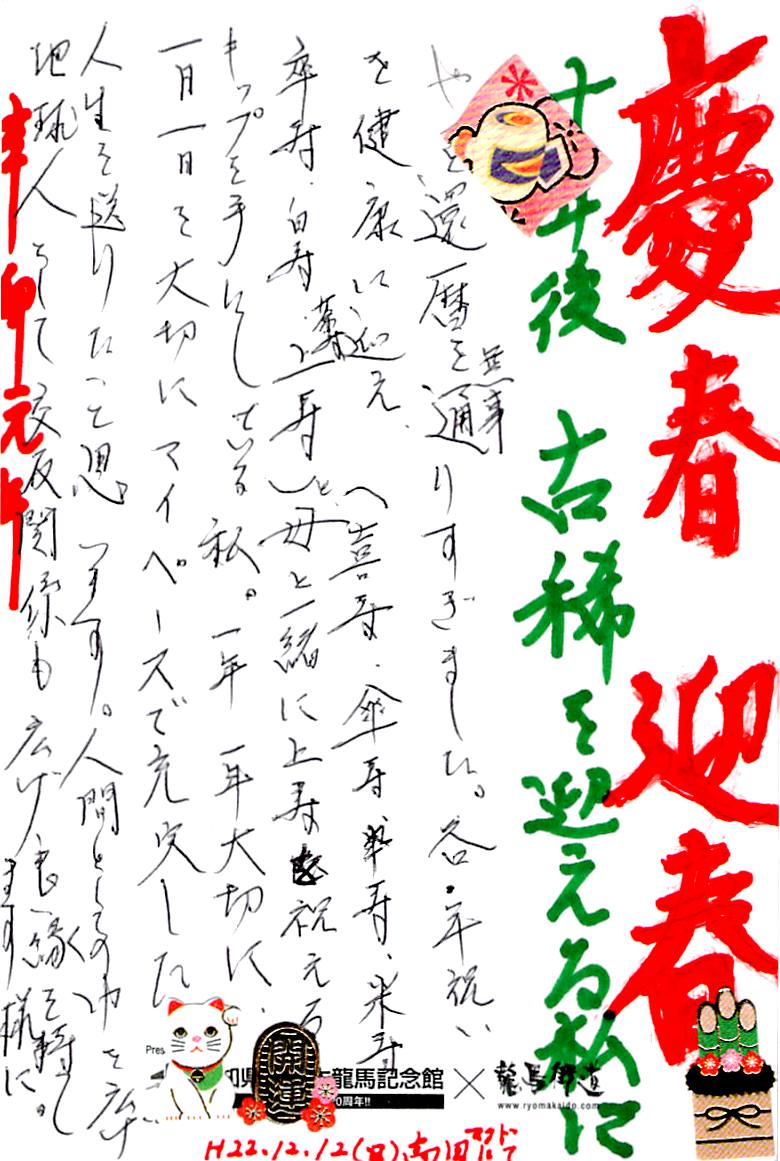 慶春 迎春
十年後 古稀を迎える私に
還暦を無事通りすぎました。各年祝い
を健康に迎え、(喜寿、傘寿、半寿、米寿
卒寿、白寿、茶寿)と、母と一緒に上寿 祝える
キップを手にしている私。一年一年大切に、
一日一日を大切にマイペースで充実した
人生を送りたいと思います。人間としての巾を広げ
地球人として交友関係も広げ良い縁を持てます様に。
辛卯元年
開運
龍馬記念館 × 龍馬街道
0周年!!
www.ryomakaido.com
H22.12.12(日)高田